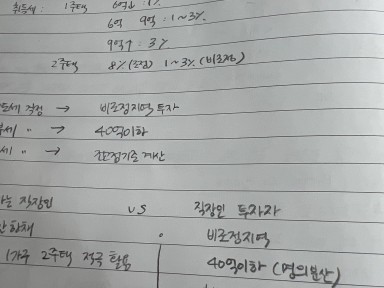 취득세 : 1주택 6억↓ : 1%
6억 9억 : 1~3%
9억↑ : 3%
2주택 8% (조정) 1~3% (비조정)
걱정 → 비조정지역 투자
" → 40억이하
" → 계산
직장인 vs 직장인 투자자
· 비조정지역
1가구 2주택 적극 활용 40억이하 (명의분산)